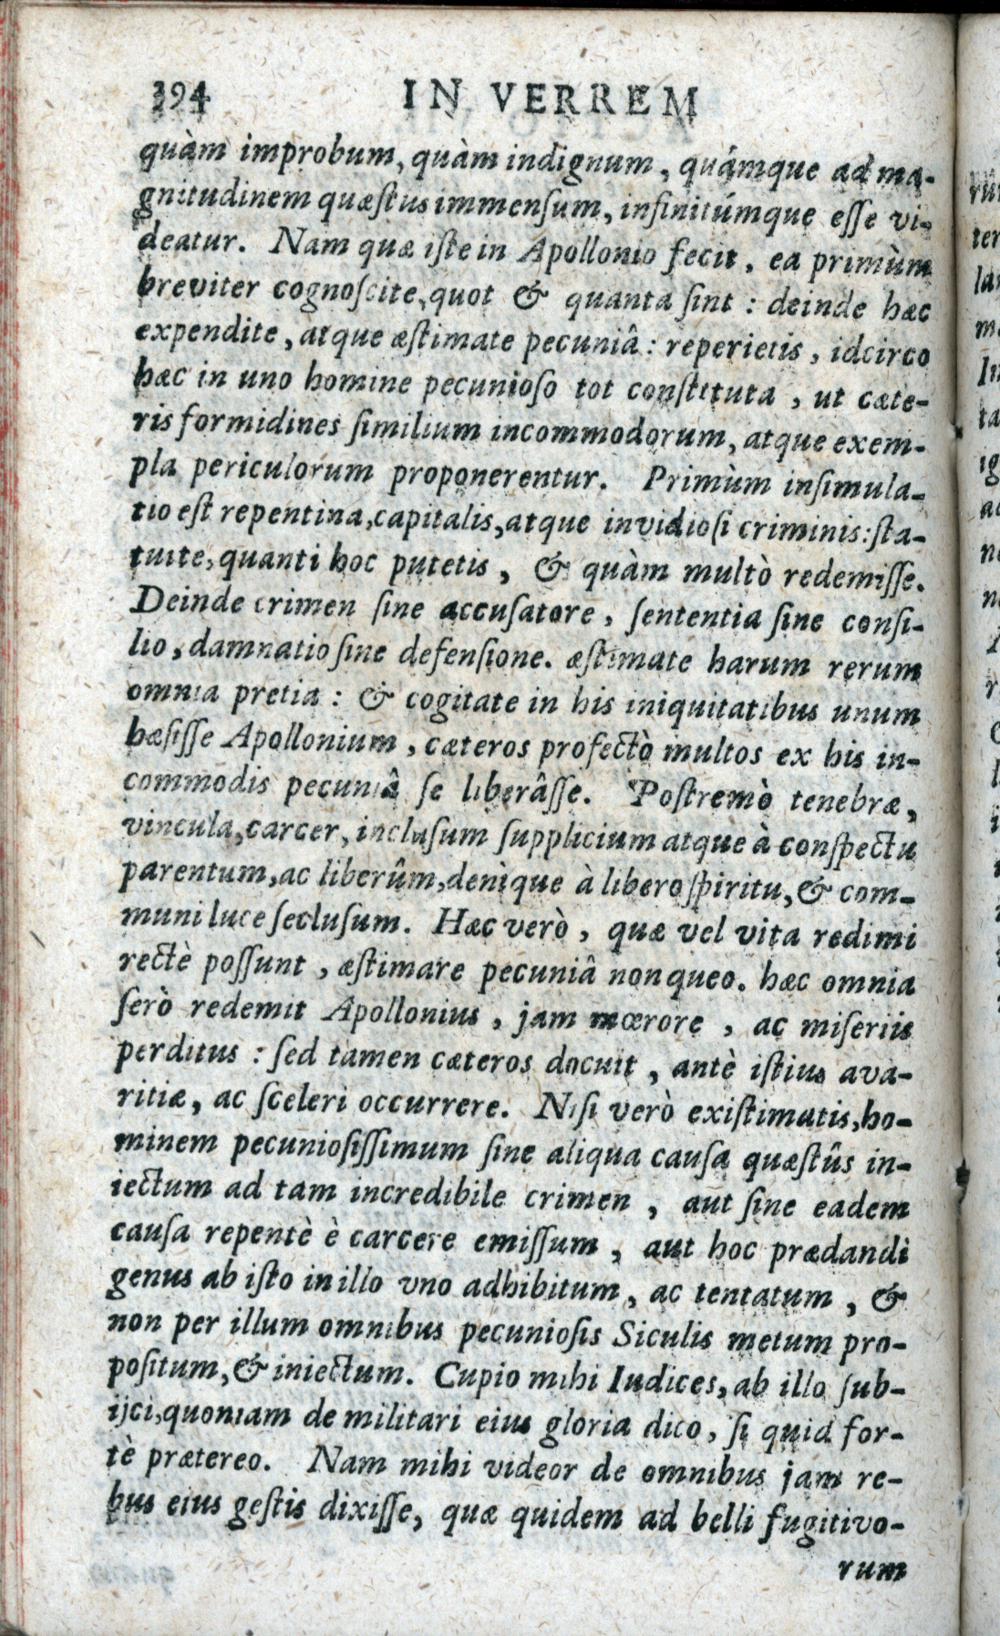 394 IN VERREM
quàm improbum, quàm indignum, quámque ad ma-
gnitudinem quæſtus immenſum, infinitúmque eſſe vi-
deatur. Nam quæ iſte in Apollonio fecit, ea primùm
breviter cognoſcite, quot & quanta ſint : deinde hæc
expendite, atque æſtimate pecuniâ : reperietis, idcirco
hæc in uno homine pecunioſo tot conſtituta, ut cæte-
ris formidines ſimilium incommodorum, atque exem-
pla periculorum proponerentur. Primùm inſimula-
tio eſt repentina, capitalis, atque invidioſi criminis: ſta-
tuite, quanti hoc putetis, & quàm multò redemiſſe.
Deinde crimen ſine accuſatore, ſententia ſine conſi-
lio, damnatio ſine defenſione. æſtimate harum rerum
omnia pretia : & cogitate in his iniquitatibus unum
hæſiſſe Apollonium, cæteros profectò multos ex his in-
commodis pecuniâ ſe liberâſſe. Poſtremò tenebræ,
vincula, carcer, incluſum ſupplicium atque à conſpectu
parentum, ac liberûm, denìque à libero ſpiritu, & com-
muni luce ſecluſum. Hæc verò, quæ vel vita redimi
rectè poſſunt, æſtimare pecuniâ non queo. hæc omnia
ſerò redemit Apollonius, jam mœrore, ac miſeriis
perditus : ſed tamen cæteros docuit, antè iſtius ava-
ritiæ, ac ſceleri occurrere. Niſi verò exiſtimatis, ho-
minem pecunioſiſſimum ſine aliqua cauſa quæſtûs in-
iectum ad tam incredibile crimen, aut ſine eadem
cauſa repentè è carcere emiſſum, aut hoc prædandi
genus ab iſto in illo vno adhibitum, ac tentatum, &
non per illum omnibus pecunioſis Siculis metum pro-
poſitum, & iniectum. Cupio mihi Iudices, ab illo ſub-
ijci, quoniam de militari eius gloria dico, ſi quid for-
tè prætereo. Nam mihi videor de omnibus jam re-
bus eius geſtis dixiſſe, quæ quidem ad belli fugitivo-
rum